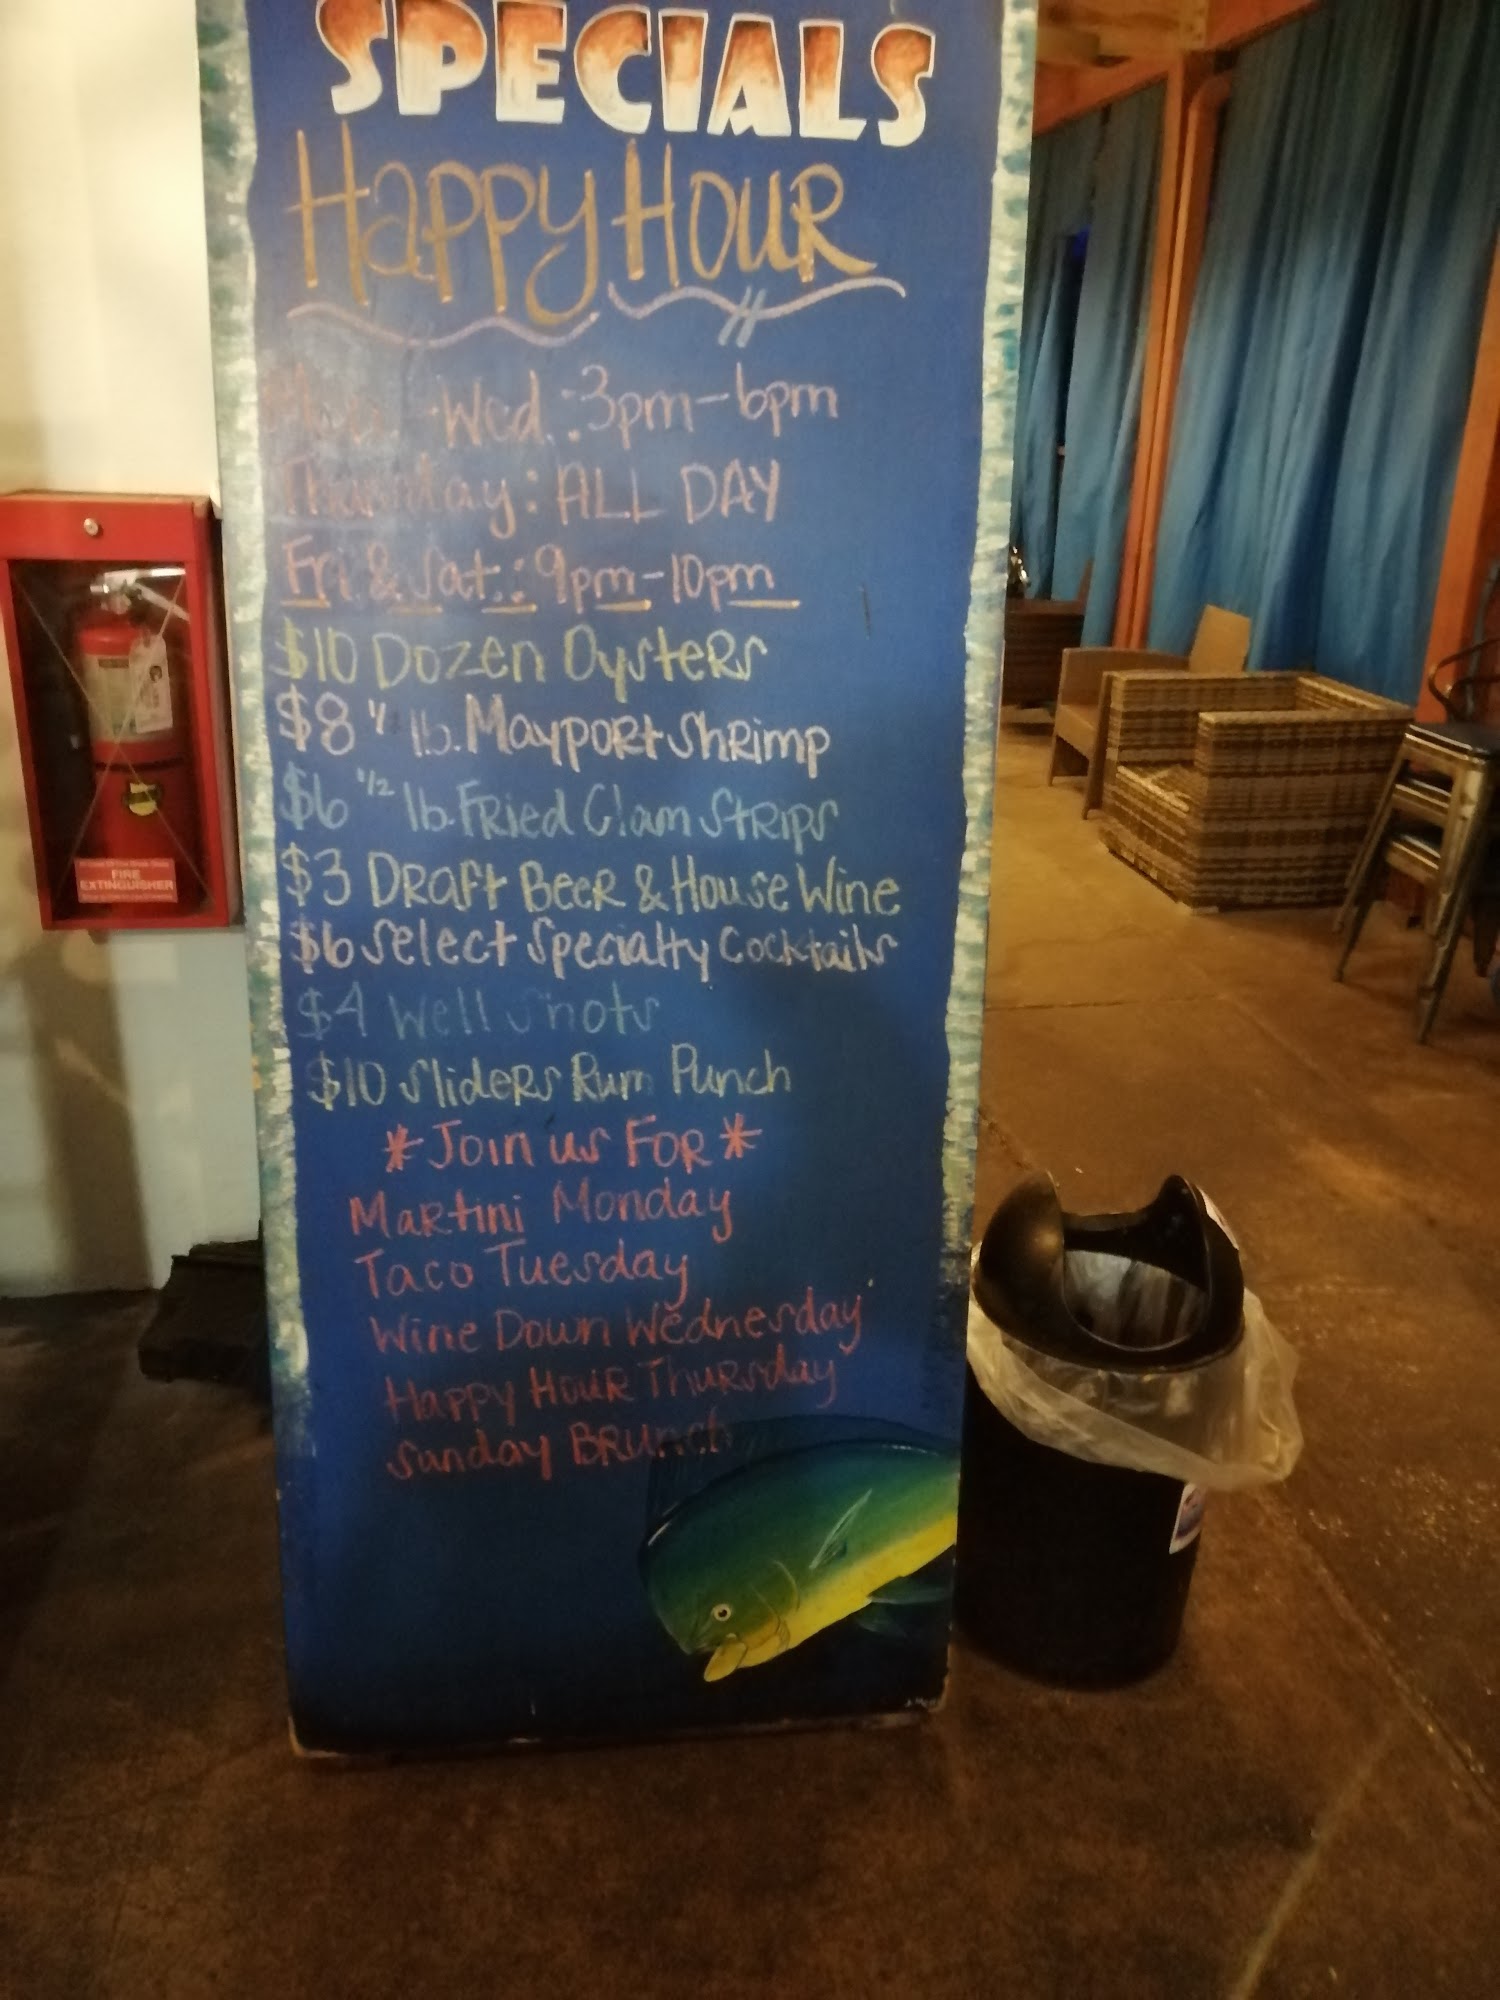 SPECIALS
Happy Hour
-Wed.: 3pm-6pm
Thursday: ALL DAY
Fri. & Sat.: 9pm-10pm
$10 Dozen Oysters
$8 lb. Mayport Shrimp
$6 1/2 lb. Fried Clam Strips
$3 Draft Beer & House Wine
$6 Select Specialty Cocktails
$4 Well Shots
$10 Sliders Rum Punch
*Join us For*
Martini Monday
Taco Tuesday
Wine Down Wednesday
Happy Hour Thursday
Sunday Brunch
FIRE
EXTINGUISHER